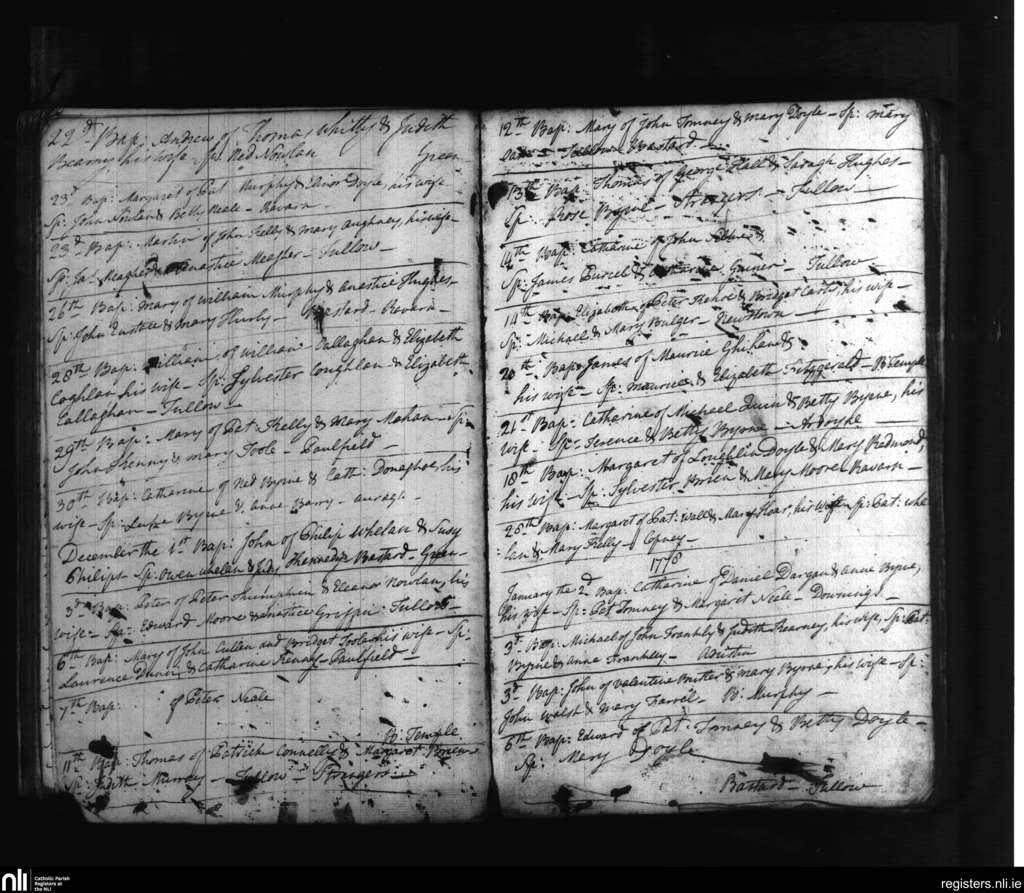 22d Bap: Andrew of Thomas Whitty & Judith
Kearney his wife Sp: Ned Nowlan Green
23d Bap: Margaret of Pat Murphy & Elinor Doyle, his wife
Sp: John Nowlan & Betty Neale - Ravarn -
23d Bap: Martin of John Kelly & Mary his wife -
Sp: Ja: Meagher & Anastice Meagher - Tullow -
26th Bap: Mary of William Murphy & Anastice Hughes -
Sp: John Eustace & Mary - Bastard - Ravarn -
28th Bap: William of William Callaghan & Elizabeth
Coghlan his wife - Sp: Sylvester Coughlan & Elizabeth
Callaghan - Tullow -
29th Bap: Mary of Pat: Kelly & Mary Mahan - Sp:
John & Mary Toole - Paulfield -
30th Bap: Catharine of Ned Byrne & Cath: Donaghoe, his
wife - Sp: Byrne & Anne Barry -
December the 1st Bap: John of Philip Whelan & Susy
Philips - Sp: Owen Whelan & Bastard - Green -
3d Bap: Peter of Peter & Eleanor Nowlan, his
wife - Sp: Edward Moore & Anastice Griffin: Tullow -
6th Bap: Mary of John Cullen and Bridget Toole his wife - Sp:
Laurence & Catharine Kenny - Paulfield -
7th Bap: of Peter Neale
B: Temple
11th Bap: Thomas of Patrick Connelly & Margaret Brien
Sp: Judith Murray - Tullow - Strangers -
12th Bap: Mary of John Tomney & Mary Doyle - Sp: Mary
- Tullow - Bastard -
13th Bap: Thomas of George Hall & Saragh Hughes -
Sp: Rose Byrne - Strangers - Tullow -
14th Bap: Catharine of John &
Sp: James Purcel & Catharine - Tullow -
14th Bap: Elizabeth of Peter Kehoe & Bridget his wife -
Sp: Michael & Mary Bulger - Newtown -
20th Bap: James of Maurice &
his wife - Sp: Maurice & Elizabeth Fitzgerald - B: Temple
21st Bap: Catharine of Michael Quin & Betty Byrne, his
wife - Sp: Terence & Betty Byrne - Ardryhe
18th Bap: Margaret of Loughlin Doyle & Mary Redmond,
his wife - Sp: Sylvester Brien & Mary Moore, Ravarn -
25th Bap: Margaret of Pat: Wall & Mary Hoar, his wife Sp: Pat: Whe
lan & Mary Kelly -
1778
January the 2d Bap: Catharine of Daniel Dargan & Anne Byrne,
his wife - Sp: Pat Tomney & Margaret Neale - Downings -
3d Bap: Michael of John & Judith Kearney, his wife, Sp: Pat:
Byrne & Anne -
3d Bap: John of Valentine Butler & Mary Byrne, his wife - Sp:
John Walsh & Mary Farrel - B: Murphy -
6th Bap: Edward of Pat: Tomney & Betty Doyle -
Sp: Mary Doyle
Bastard - Tullow
nli
Catholic Parish
Registers at
the NLI
registers.nli.ie